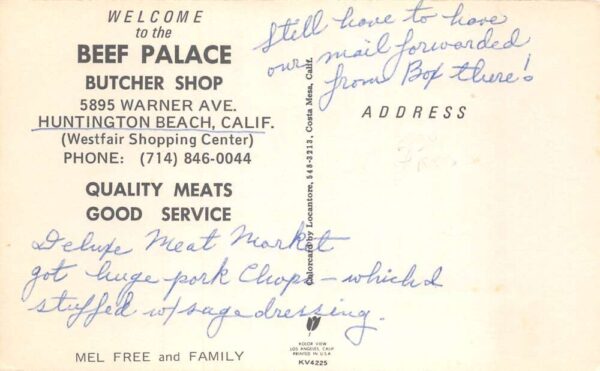 WELCOME
to the
BEEF PALACE
BUTCHER SHOP
5895 WARNER AVE.
HUNTINGTON BEACH, CALIF.
(Westfair Shopping Center)
PHONE: (714) 846-0044
QUALITY MEATS
GOOD SERVICE
Deluxe Meat Market
got huge pork Chops - which I
stuffed w/sage dressing.
MEL FREE and FAMILY
Colorcard by Locantore, 548-3213, Costa Mesa, Calif.
KOLOR VIEW
LOS ANGELES, CALIF
PRINTED IN U.S.A.
KV4225
Still have to have
our mail forwarded
from Box there!
ADDRESS